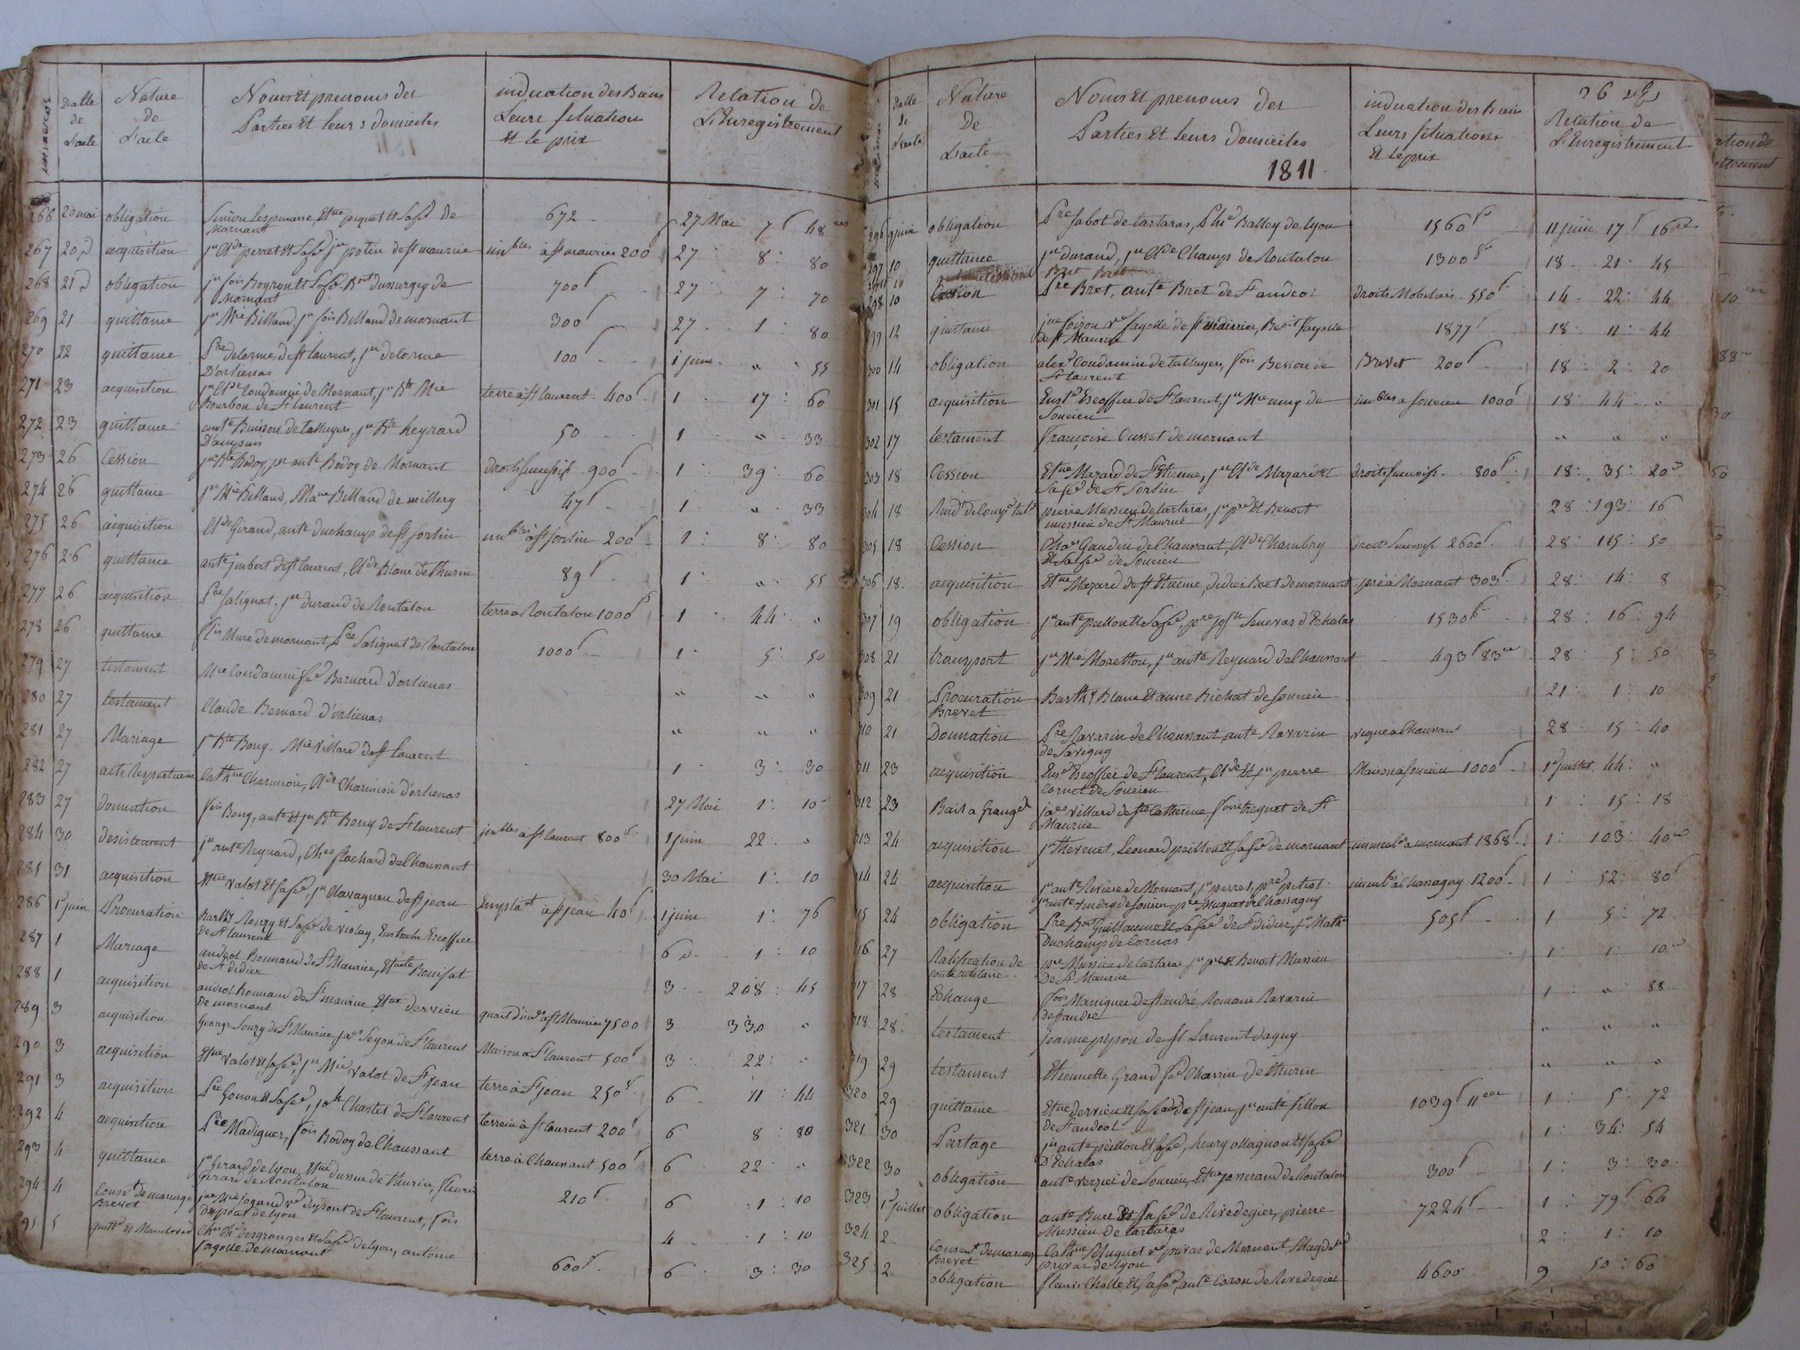 numeros
Datte de L'acte
Nature de L'acte
Noms Et prenoms des Parties Et leurs domiciles
indication des Biens Leurs situation Et le prix
Relation de L'Enregistrement
266 20 mai obligation Simon Lespinasse, Etne piquet et sa fe de Mornant 672 27 Mai 7f 48
267 20 d acquisition jn Cde perret et sa fe jn potin de st maurice imbles a st maurice 200 27 8 80
268 21 d obligation jn fois Boyron et sa fe Bort dumurgey de Mornant 700f 27 7 70
269 21 quittance jn Mie Billand, jn fois Billand de mornant 300f 27 1 80
270 22 quittance Pre delorme de st laurent, jn delorme D'orlienas 100f 1 juin " 55
271 23 acquisition jn Cde Condamin de Mornant, jn Bte Mie Bourbon de St laurent terre a St laurent 400f 1 17 60
272 23 quittance ante Buisson de talluyer, jn Bte heyrard 50 1 " 33
273 26 Cession jn Bte Bodoy, jn ante Bodoy de Mornant droits successifs 900f 1 39 60
274 26 quittance jn Mie Billand, Billand de millery 47f 1 " 33
275 26 acquisition Cde Girard, ante duchamps de st sorlin imble a st sorlin 200f 1 8 80
276 26 quittance ante jmbert de st laurent, Cde Blanc de thurin 89f 1 " 55
277 26 acquisition Pre Salignat, jn durand de Rontalon terre a Rontalon 1000f 1 44 "
278 26 quittance Mure de mornant, Pre Salignat de Rontalon 1000f 1 5 50
279 27 testament Mie Condamin fe Bernard d'orlienas " " "
280 27 testament Claude Bernard d'orlienas " " "
281 27 Mariage jn Bte Bony, Mie villard de st laurent 1 3 30
282 27 acte Respectueux Cathne Charmion, Cde Charmion d'orlienas 27 Mai 1 10
283 27 Donnation fois Bony, ante et jn Bte Bony de St laurent imbles a st laurent 800f 1 juin 22 "
284 30 desistement jn ante Reynard, Ches flachard de Chaussant 30 Mai 1 10
285 31 acquisition Etne valot et sa fe, jn Clavagneu de st jean Emplat a st jean 40f 1 juin 1 76
286 1er juin Procuration Barthy Rouzy et sa fe de violay, Eustache Escoffier de St laurent 6 d 1 10
287 1 Mariage andeol Bonnand de St Maurice, Etnete Bouisat de St didier 3 208 45
288 1 acquisition andeol Bonnand de St maurice, Etne dervieu de mornant quart d'imble a st Maurice 7500 3 330 "
289 3 acquisition George Souzy de St Maurice, jaes Seyon de St laurent Maison a St laurent 500f 3 22 "
290 3 acquisition Etne valot et sa fe, jn Mie valot de St jean terre a St jean 250f 6 11 44
291 3 acquisition Pre Gonon et sa fe, joh Chartet de St laurent terrein a st laurent 200f 6 8 80
292 4 acquisition Pre Madignier, fois Bodoy de Chaussant terre a Chaussant 500f 6 22 "
293 4 quittance jn Girard de lyon, Etne dumur de thurin, fleurie Girard de Rontalon 210f 6 1 10
294 4 Consent de mariage Brevet Mie fogard ve dupont de St laurent, fois dupont de lyon 4 1 10
295 5 quittce et Mainlevée desgranges et sa fe de lyon, antoine fayolle de mornant 600f 6 3 30
numeros
Datte de L'acte
Nature De L'acte
Noms Et prenoms des Parties Et leurs domiciles
1811
indication des Biens Leurs situations Et le prix
26
Relation de L'Enregistrement
296 9 juin obligation Pre Sabot de tartaras, Balley de Lyon 1560f 11 juin 17f 16
297 10 quittance jn durand, jn Cde Champs de Rontalon 1300f 18 21 45
298 10 Cession Pre Bret, ante Bret de St andeol droits Mobiliers 550f 14 22 44
299 12 quittance jne ve fayolle de st didier, Benoit fayolle de st Maurice 1877f 18 11 44
300 14 obligation alexe Condamin de talluyer, fois Besson de St laurent Brevet 200f 18 2 20
301 15 acquisition Euste Escoffier de St laurent, jn Mie de Soucieu imbles a Soucieu 1000f 18 44 "
302 17 testament françoise Cusset de mornant " " "
303 18 Cession Etne Mazard de St Etienne, jn Cde Mazard et sa fe de St Sorlin droits successifs 800f 18 35 20
304 18 pierre Mussieu de tartaras, jn pre et Benoit mussieu de St Maurice 28 193 16
305 18 Cession Gaudin de Chaussant, Cde Chambry et sa fe de Soucieu droits successifs 2600f 28 115 50
306 18 acquisition Etne Mazard de st Etienne, didier Boet de mornant pré a Mornant 303f 28 14 8
307 19 obligation jn ante peillon et sa fe, Senevas d'Echalas 1530f 28 16 94
308 21 transport jn Mie Moretton, jn ante Reynard de Chaussant 493f 83 28 5 50
309 21 Procuration Brevet Barthy Blanc et anne Bichat de Soucieu 21 1 10
310 21 Donnation Pre Ravarin de Chaussant, ante Ravarin de Savigny vigne a Chaussant 28 15 40
311 23 acquisition Euse Escoffier de St laurent, Cde et jn pierre Cornet de Soucieu Maison a Soucieu 1000f 1er juillet 44 "
312 23 Bail a Grange jaes villard de ste Catherine, fois Crequet de St Maurice 1 15 18
313 24 acquisition jn thevenet, Leonard peillon et sa fe de mornant immeuble a mornant 1868f 1 103 40
314 24 acquisition jn ante Riviere de Mornant, jn perret, pre pitiot 1200f 1 52 80
315 24 obligation Pre Bort Guillaume et sa fe de St Didier, Duchamps de Cornas 505f 1 5 72
316 27 Ratification de pre Mussieu de tartaras, jn pre et Benoit Mussieu De St Maurice 1 1 10
317 28 Echange fois Manignier de st andré, Romain Ravarin de st andré 1 " 88
318 28 testament jeanne pipon de st Laurent dagny " " "
319 29 testament Etiennette Grand fe Chavin de thurin " " "
320 29 quittance Etne dervieu et sa fe de st jean, jn ante fillon de St andeol 1039f 11 1 5 72
321 30 Partage jn ante peillon et sa fe, henry Magnon et sa fe D'Echalas 1 34 54
322 30 obligation ante verzier de Soucieu, Etne jomerand de Rontalon 300f 1 3 30
323 1er juillet obligation ante Buer et sa fe de Rivedegier, pierre Mussieu de tartaras 7224f 1 79f 64
324 2 Consent de mariage Brevet Cathne Muguet ve privas de Mornant, Magdne privas de lyon 2 1 10
325 2 obligation fleuri Cholle et sa fe, ante Coron de Rivedegier 4600 9 50 60